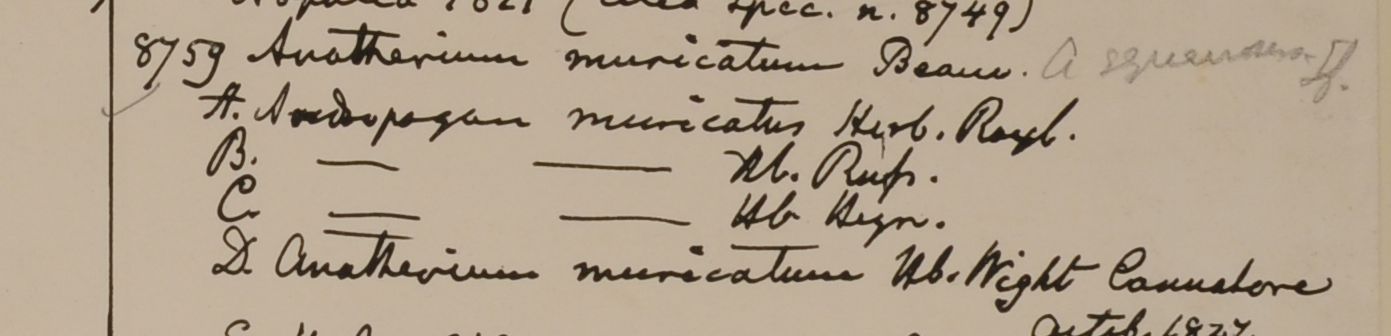 Nopalia 1821 (vlld spec. n. 8749)
8759 Anatherium muricatum Beauv. A squarrosus Lf.
A. Andropogon muricatus Herb. Royl.
B. — — Hb. Russ.
C. — — Hb Heyn.
D. Anatherium muricatum Hb. Wight Cannalore
Octob. 1827